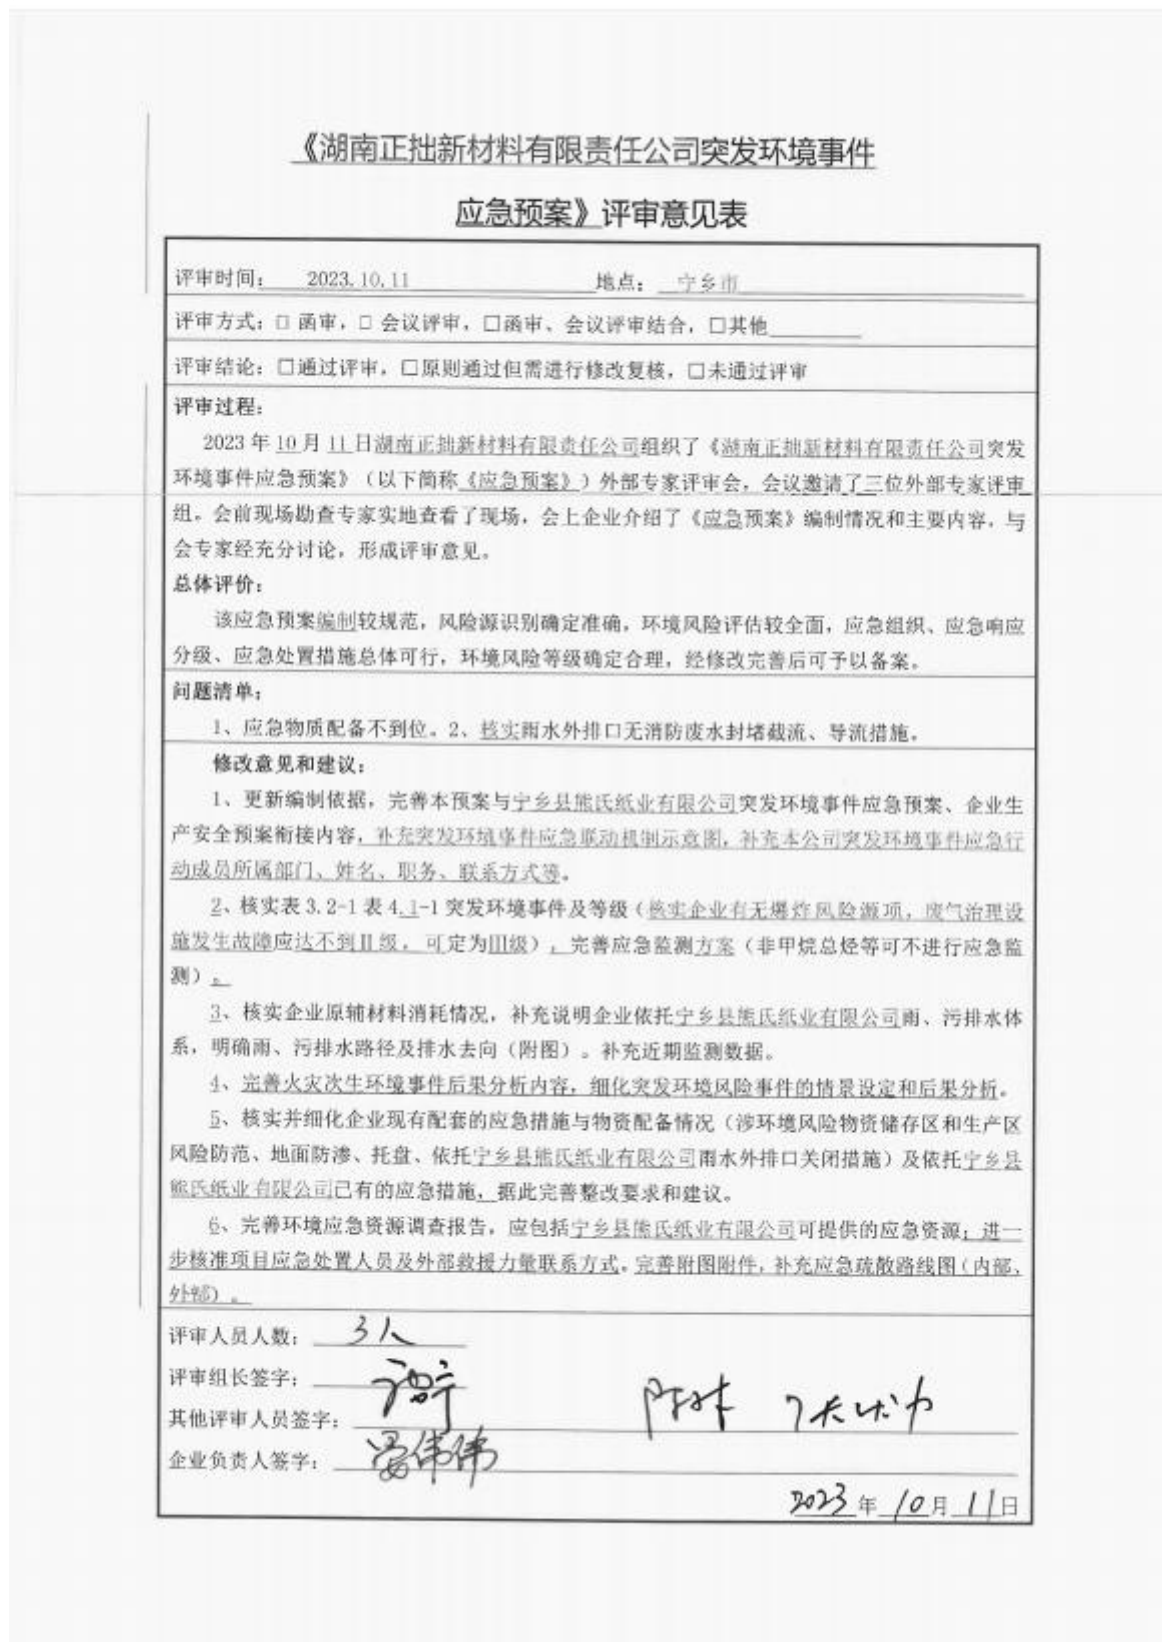 《湖南正拙新材料有限责任公司突发环境事件
应急预案》评审意见表
评审时间： 2023.10.11 地点： 宁乡市
评审方式：□ 函审，□ 会议评审，□函审、会议评审结合，□其他
评审结论：□通过评审，□原则通过但需进行修改复核，□未通过评审
评审过程：
2023 年 10 月 11 日湖南正拙新材料有限责任公司组织了《湖南正拙新材料有限责任公司突发
环境事件应急预案》（以下简称《应急预案》）外部专家评审会，会议邀请了三位外部专家评审
组。会前现场勘查专家实地查看了现场，会上企业介绍了《应急预案》编制情况和主要内容，与
会专家经充分讨论，形成评审意见。
总体评价：
该应急预案编制较规范，风险源识别确定准确，环境风险评估较全面，应急组织、应急响应
分级、应急处置措施总体可行，环境风险等级确定合理，经修改完善后可予以备案。
问题清单：
1、应急物质配备不到位。2、核实雨水外排口无消防废水封堵截流、导流措施。
修改意见和建议：
1、更新编制依据，完善本预案与宁乡县熊氏纸业有限公司突发环境事件应急预案、企业生
产安全预案衔接内容，补充突发环境事件应急联动机制示意图，补充本公司突发环境事件应急行
动成员所属部门、姓名、职务、联系方式等。
2、核实表 3.2-1 表 4.1-1 突发环境事件及等级（核实企业有无爆炸风险源项，废气治理设
施发生故障应达不到Ⅱ级，可定为Ⅲ级），完善应急监测方案（非甲烷总烃等可不进行应急监
测）。
3、核实企业原辅材料消耗情况，补充说明企业依托宁乡县熊氏纸业有限公司雨、污排水体
系，明确雨、污排水路径及排水去向（附图）。补充近期监测数据。
4、完善火灾次生环境事件后果分析内容，细化突发环境风险事件的情景设定和后果分析。
5、核实并细化企业现有配套的应急措施与物资配备情况（涉环境风险物资储存区和生产区
风险防范、地面防渗、托盘、依托宁乡县熊氏纸业有限公司雨水外排口关闭措施）及依托宁乡县
熊氏纸业有限公司已有的应急措施，据此完善整改要求和建议。
6、完善环境应急资源调查报告，应包括宁乡县熊氏纸业有限公司可提供的应急资源；进一
步核准项目应急处置人员及外部救援力量联系方式。完善附图附件，补充应急疏散路线图（内部、
外部）。
评审人员人数： 3人
评审组长签字：
其他评审人员签字：
企业负责人签字： 晏伟伟
2023 年 10 月 11 日